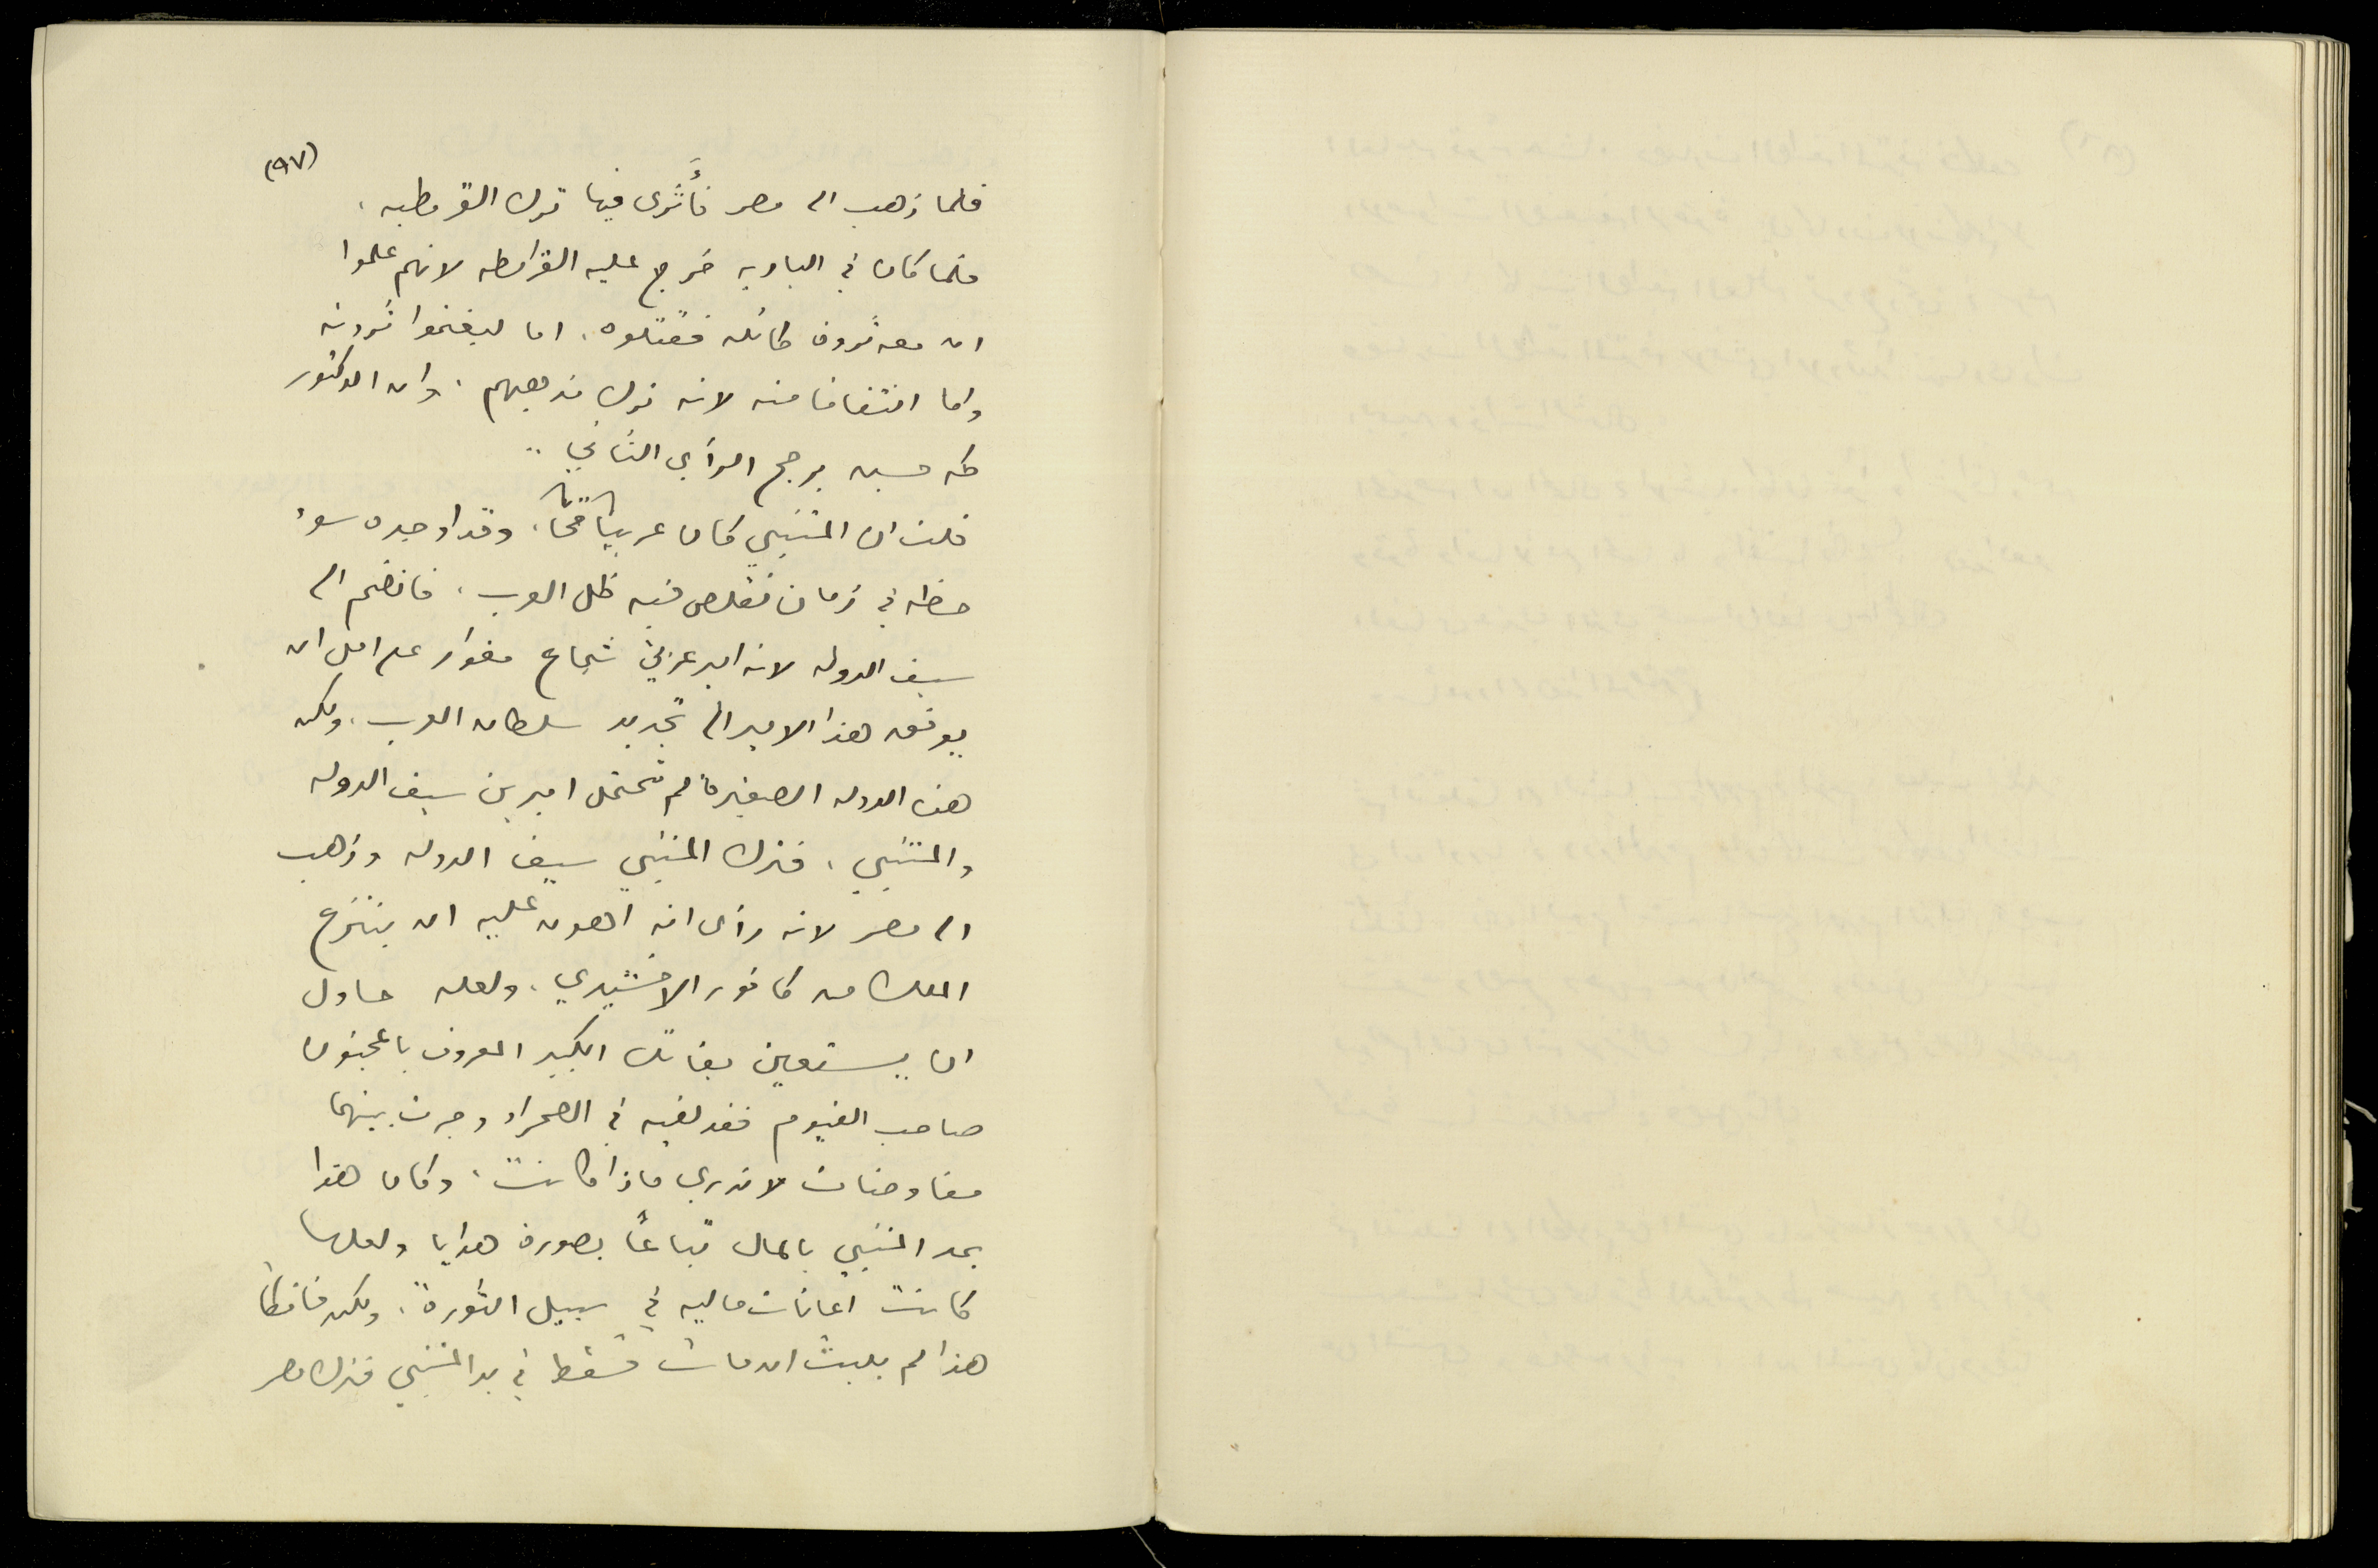 (٩٧)
فلما ذهب الى مصر فأثرى فيها ترك القرمطيه ،
فلما كان في الباديه خرج عليه القرامطه لانهم علموا
ان معه ثروة طائله فقتلوه ، اما ليغنموا ثروته
واما انتقاما منه لانه ترك مذهبهم ، وان الدكتور
طه حسين يرجح الرأي الثاني ..
قلت ان المتنبي كان عربياً قحاً ، وقد اوجده سوء
حظه في زمان تقلص فيه ظل العرب ، فانضم الى
سيف الدوله لانه امير عربي شجاع مغوار على امل ان
يوفق هذا الامير الى تجديد سلطان العرب ، ولكن
هذه الدوله الصغيرة لم تحتمل اميرين سيف الدوله
والمتنبي ، فترك المتنبي سيف الدوله وذهب
الى مصر لانه رأى انه اهون عليه ان ينتزع
الملك من كافور الاخشيدي ، ولعله حاول
ان يستعين بفاتك الكبير المعروف بالمجنون
صاحب الفيوم فقد لقيه في الصحراء وجرت بينهما
مفاوضات لا ندري ماذا كانت ، وكان هذا
يمد المتنبي بالمال تباعاً بصورة هدايا ولعلها
كانت اعانات ماليه في سبيل الثورة ، ولكن فاتكاً
هذا لم يلبث ان مات فسقط في يد المتنبي فترك مصر